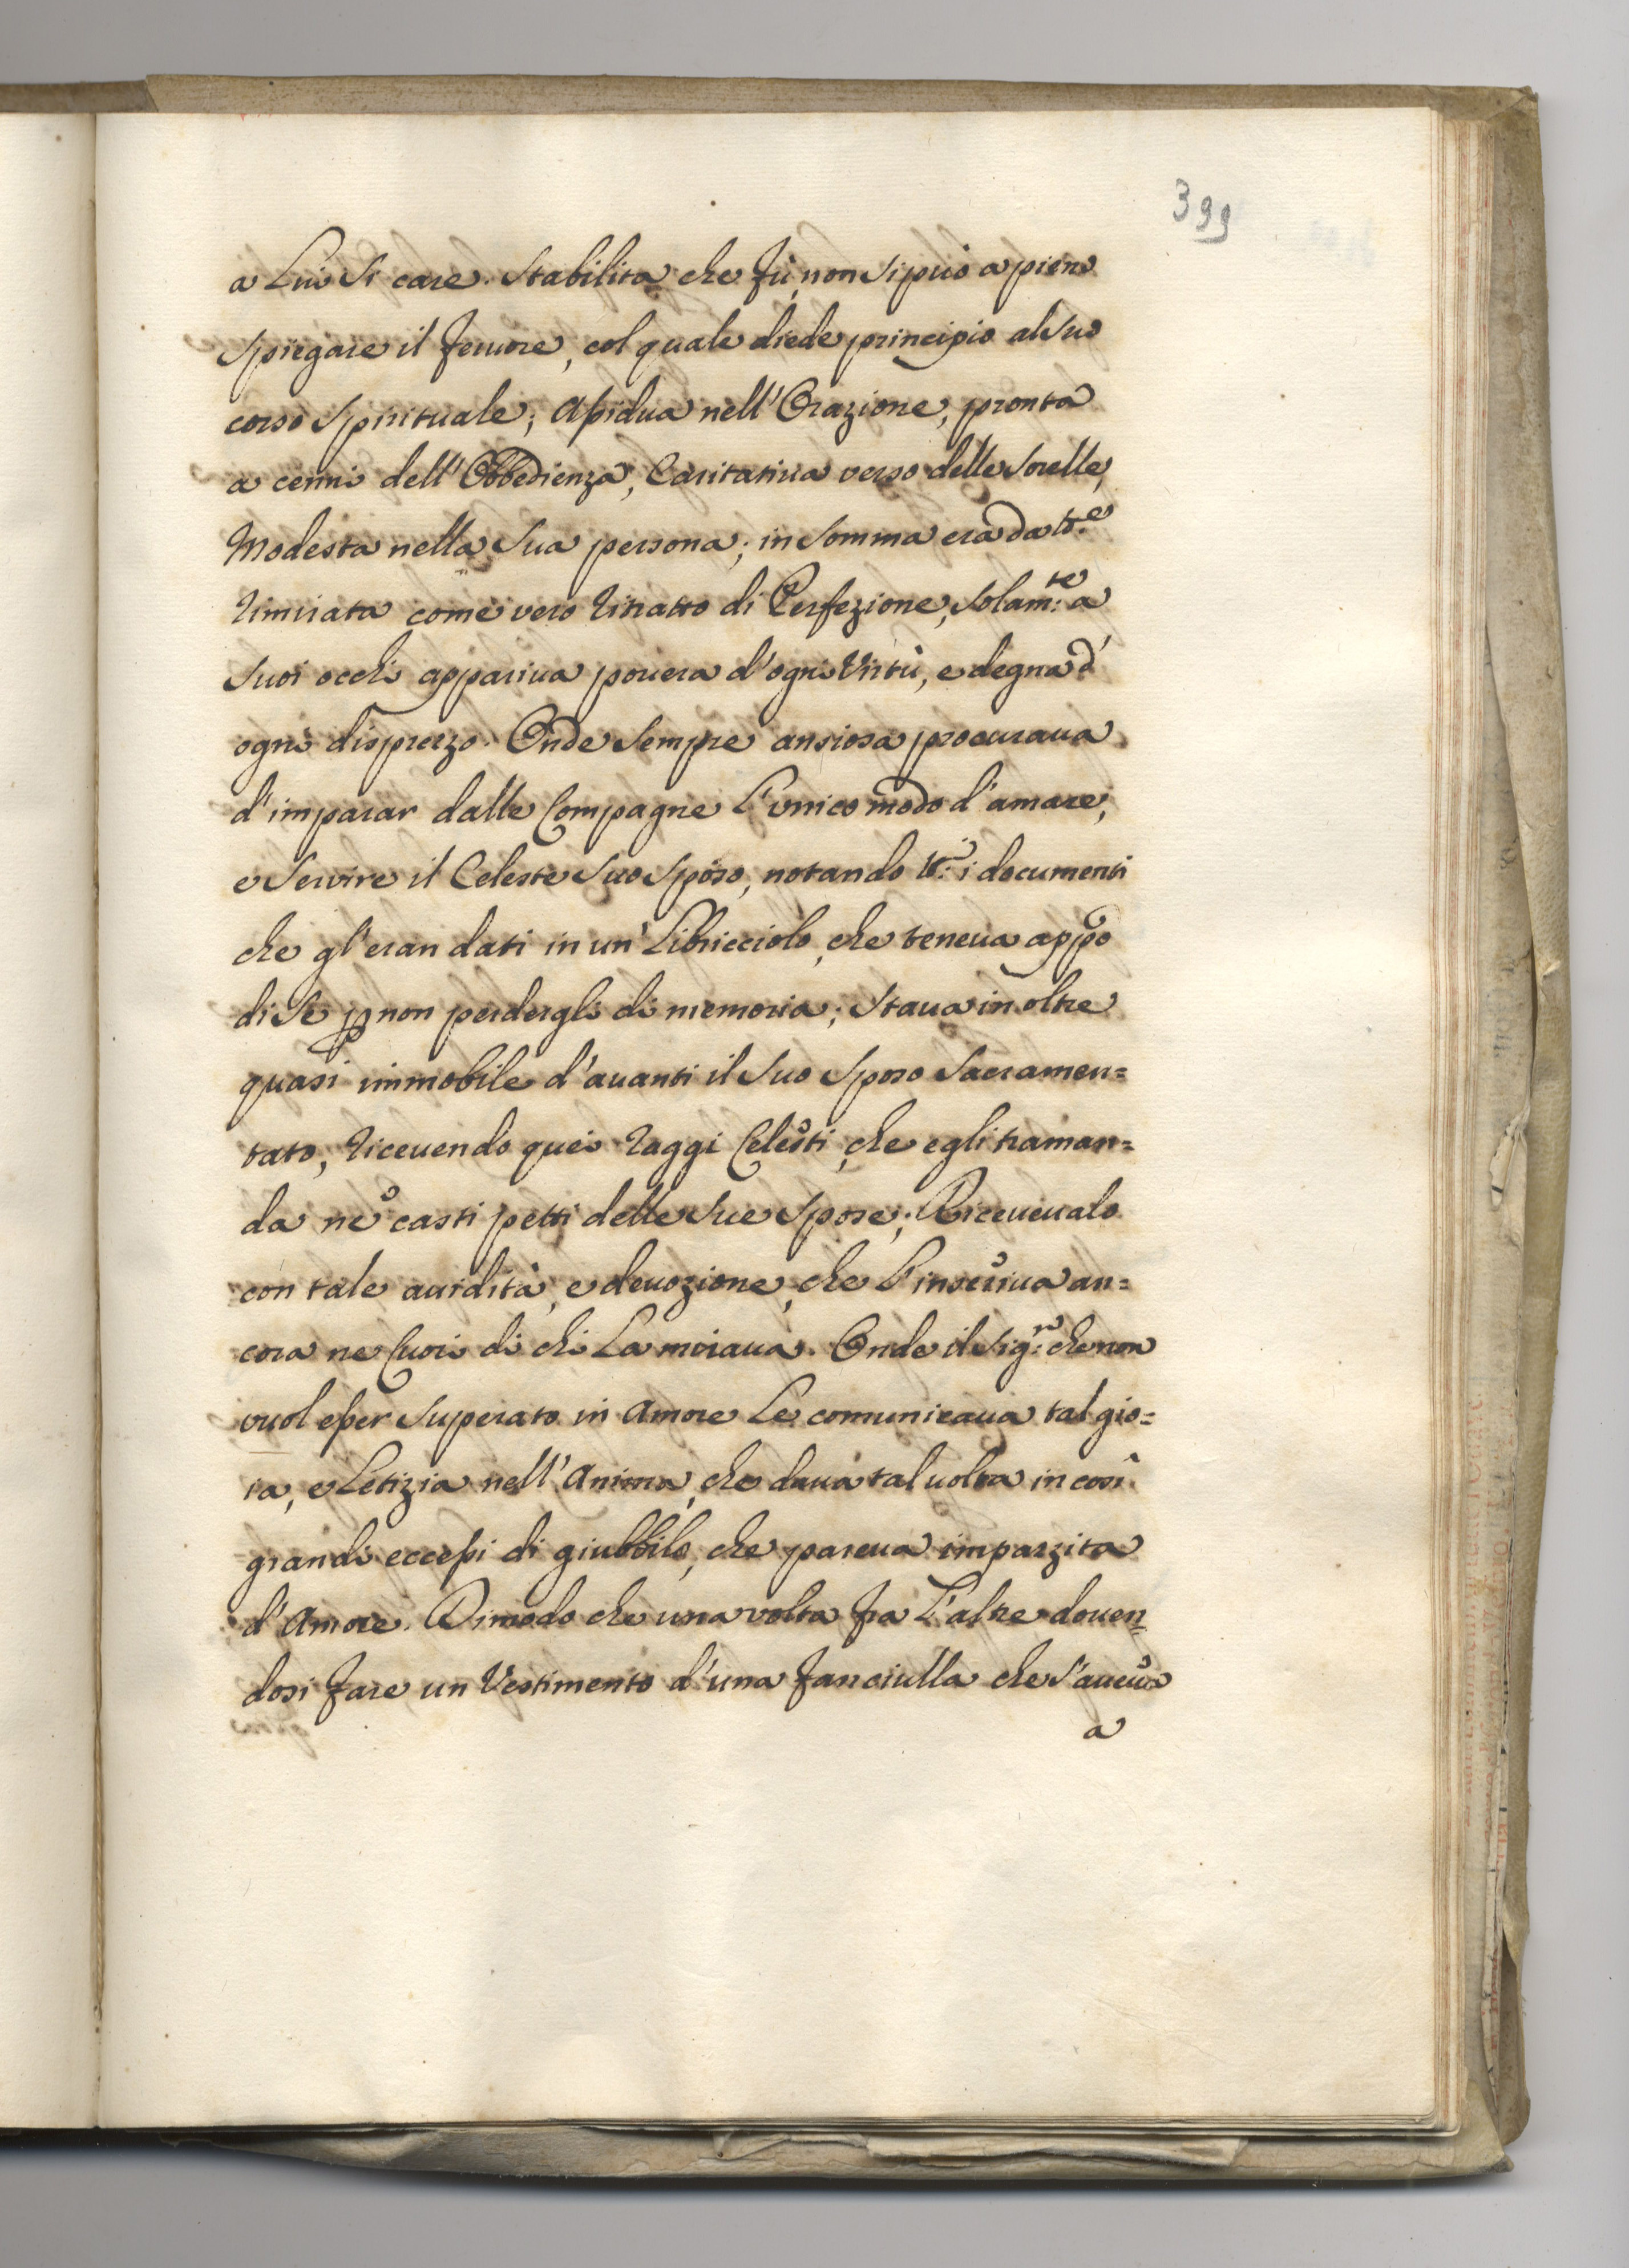 399
a Lui Si care. Stabilita che fù, non si può a pieno
spiegare il feruore, col quale diede principio al suo
corso spirituale; Assidua nell'Orazione, pronta
a cenni dell'Obbedienza, Caritatiua verso delle Sorelle,
Modesta nella Sua persona; in Somma era da tt.e
rimirata come vero ritratto di Perfezione, Solam:te a
Suoi occhi appariua pouera d'ogni Virtù, e degna d'
ogni disprezzo. Onde Sempre ansiosa procuraua
d'imparar dalle Compagne L'vnico modo d'amare,
e Servire il Celeste Suo Sposo, notando tt:i i documenti
che gl'eran dati in un' Libricciolo, che teneua appo
di Se p non perdergli di memoria; Staua in oltre
quasi immobile d'auanti il Suo Sposo Sacramen=
tato, riceuendo quei raggi Celesti, che egli traman=
da ne casti petti delle Sue Spose; Riceueualo
con tale auidità, e deuozione, che L'inseriua an=
cora ne Cuori di chi La miraua. Onde il Sig:re che non
vuol esser Superato in Amore Le comunicaua tal gio=
ia, e Letizia nell'Anima, che daua tal uolta in così
grandi eccessi di giubbilo, che pareua impazzita
d'Amore. Dimodo che una volta fra L'altre douen=
dosi fare un Vestimento d'una fanciulla che S'aueua
a